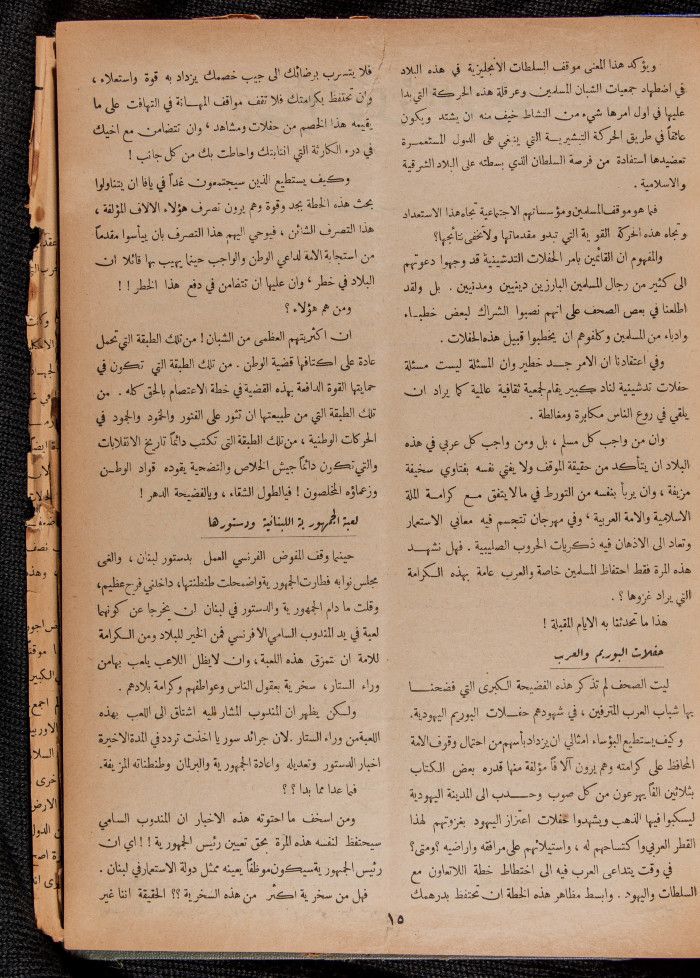 ويؤكد هذا المعنى موقف السلطات الانجليزية في هذه البلاد
في اضطهاد جمعيات الشبان المسلمين وعرقلة هذه الحركة التي بدا
عليها في اول امرها شيء من النشاط خيف منه ان يشتد ويكون
عائقاً في طريق الحركة التبشيرية التي ينبغي على الدول المستعمرة
تعضيدها استفادة من فرصة السلطان الذي بسطته على البلاد الشرقية
والاسلامية .
فما هو موقف المسلمين ومؤسساتهم الاجتماعية تجاه هذا الاستعداد
وتجاه هذه الحركة القوية التي تبدو مقدماتها ولا تخفى نتائجها؟
والمفهوم ان القائمين بامر الحفلات التدشينية قد وجهوا دعوتهم
الى كثير من رجال المسلمين البارزين دينيين ومدنيين . بل ولقد
اطلعنا في بعض الصحف على انهم نصبوا الشراك لبعض خطباء
وادباء من المسلمين وكلفوهم ان يخطبوا قبيل هذه الحفلات .
وفي اعتقادنا ان الامر جد خطير وان المسئلة ليست مسئلة
حفلات تدشينية لناد كبير يقام لجمعية ثقافية عالمية كما يراد ان
يلقي في روع الناس مكابرة ومغالطة .
وان من واجب كل مسلم ، بل ومن واجب كل عربي في هذه
البلاد ان يتأكد من حقيقة الموقف ولا يفتي نفسه بفتاوي سخيفة
مزيفة ، وان يربأ بنفسه من التورط في ما لا يتفق مع كرامة الملة
الاسلامية والامة العربية ، وفي مهرجان تتجسم فيه معاني الاستعمار
وتعاد الى الاذهان فيه ذكريات الحروب الصليبية . فهل نشهد
هذه المرة فقط احتفاظ المسلمين خاصة والعرب عامة بهذه الكرامة
التي يراد غزوها ؟ .
هذا ما تحدثنا به الايام المقبلة !
حفلات البوريم والعرب
ليت الصحف لم تذكر هذه الفضيحة الكبرى التي فضحنا
بها شباب العرب المترفين ، في شهودهم حفلات البوريم اليهودية .
وكيف يستطيع البؤساء امثالي ان يزداد بأسهم من احتمال وقرف الامة
المحافظ على كرامته وهم يرون آلافاً مؤلفة منها قدره بعض الكتاب
بثلاثين الفاً يهرعون من كل صوب وحدب الى المدينة اليهودية
ليسكبوا فيها الذهب ويشهدوا حفلات اعتزاز اليهود بغزوتهم لهذا
القطر العربي واكتساحهم له ، واستيلائهم على مرافقه واراضيه ؟ ومتى؟
في وقت يتداعى العرب فيه الى اختطاط خطة اللاتعاون مع
السلطات واليهود . وابسط مظاهر هذه الخطة ان تحتفظ بدرهمك
فلا يتسرب برضائك الى جيب خصمك يزداد به قوة واستعلاء ،
وان تحتفظ بكرامتك فلا تقف مواقف المهانة في التهافت على ما
يقيمه هذا الخصم من حفلات ومشاهد ، وان تتضامن مع اخيك
في درء الكارثة التي انتابتك واحاطت بك من كل جانب !
وكيف يستطيع الذين سيجتمعون غداً في يافا ان يتناولوا
بحث هذه الخطة بجد وقوة وهم يرون تصرف هؤلاء الالاف المؤلفة ،
هذا التصرف الشائن ، فيوحي اليهم هذا التصرف بان ييأسوا مقدماً
من استجابة الامة لداعي الوطن والواجب حينما يهيب بها قائلا ان
البلاد في خطر ، وان عليها ان تتضامن في دفع هذا الخطر ! !
ومن هم هؤلاء ؟
ان اكثريتهم العظمى من الشبان ! من تلك الطبقة التي تحمل
عادة على اكتافها قضية الوطن . من تلك الطبقة التي تكون في
حمايتها القوة الدافعة بهذه القضية في خطة الاعتصام بالحق كله . من
تلك الطبقة التي من طبيعتها ان تثور على الفتور والخمود والجمود في
الحركات الوطنية ، من تلك الطبقة التى تكتب دائماً تاريخ الانقلابات
والتي تكون دائماً جيش الخلاص والتضحية يقوده قواد الوطن
وزعماؤه المخلصون ! فيالطول الشقاء ، ويالفضيحة الدهر !
لعبة الجمهورية اللبنانية ودستورها
حينما وقف المفوض الفرنسي العمل بدستور لبنان ، والغى
مجلس نوابه فطارت الجمهورية واضمحلت طنطنتها، داخلني فرح عظيم ،
وقلت ما دام الجمهورية والدستور في لبنان لن يخرجا عن كونهما
لعبة في يد المندوب السامي الافرنسي فمن الخير للبلاد ومن الكرامة
للامة ان تتمزق هذه اللعبة ، وان لا يظل اللاعب يلعب بها من
وراء الستار ، سخرية بعقول الناس وعواطفهم وكرامة بلادهم .
ولكن يظهر ان المندوب المشار اليه اشتاق الى اللعب بهذه
اللعبة من وراء الستار . لان جرائد سوريا اخذت تردد في المدة الاخيرة
اخبار الدستور وتعديله واعادة الجمهورية والبرلمان وطنطناته المزيفة .
فما عدا مما بدا ؟ ؟
ومن اسخف ما احتوته هذه الاخبار ان المندوب السامي
سيحتفظ لنفسه هذه المرة بحق تعيين رئيس الجمهورية ! ! اي ان
رئيس الجمهورية سيكون موظفاً يعينه ممثل دولة الاستعمار في لبنان .
فهل من سخرية اكثر من هذه السخرية ؟؟ الحقيقة اننا غير
١٥